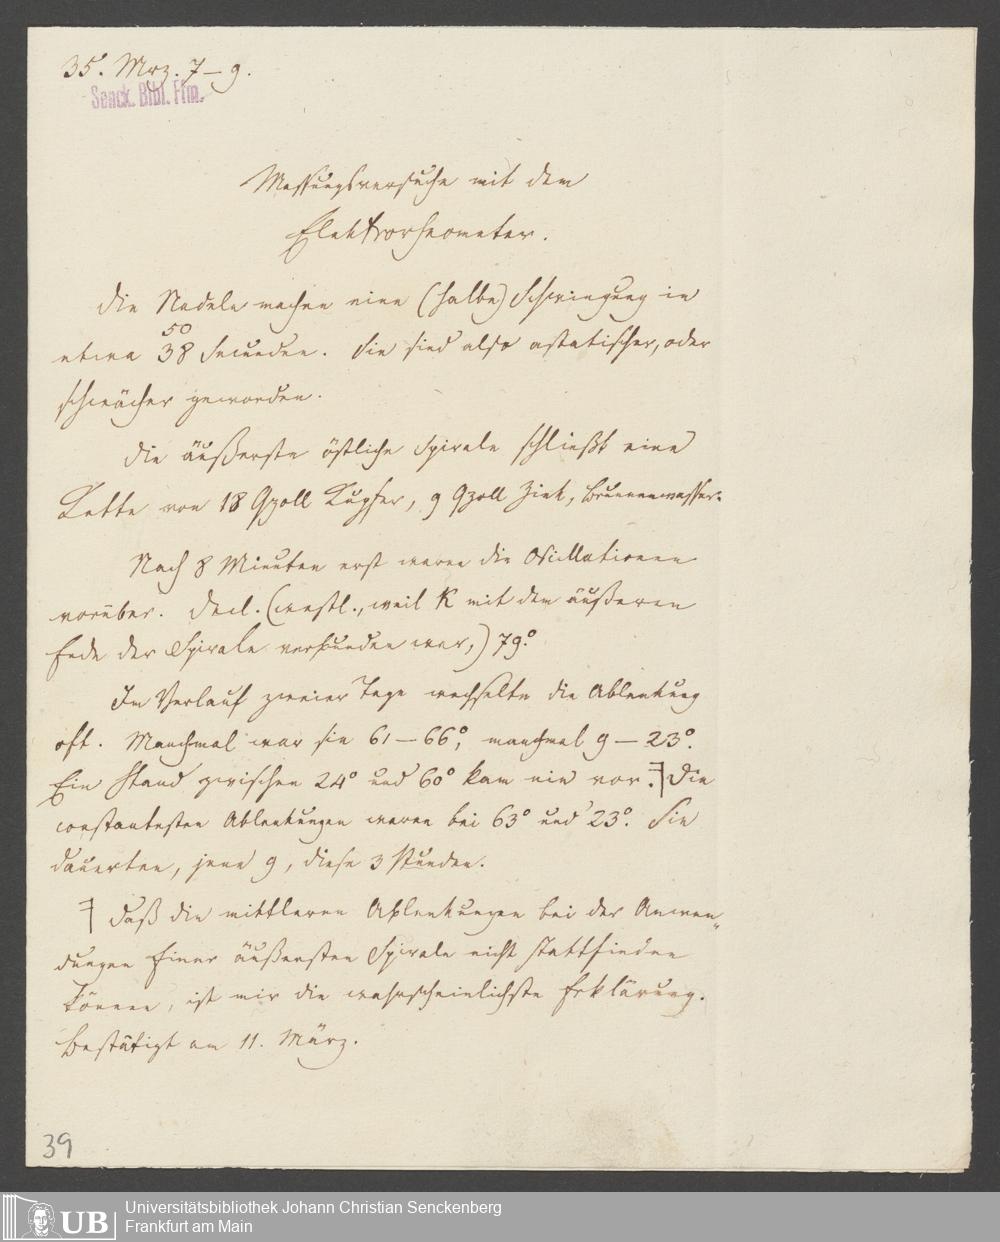 35. Mrz. 7–9.
Senck. Bibl. Ffm.
Messungsversuche mit dem
Elektrorheometer.
Die Nadeln machen eine (halbe) Schwingung in
50
etwa 38 Secunden. Sie sind also astatischer, oder
schwächer geworden.
Die äußerste östliche Spirale schließt eine
Kette von 18 Qzoll Kupfer, 9 Qzoll Zink, Brunnenwasser.
Nach 8 Minuten erst waren die Oscillationen
vorüber. Decl. (westl., weil K mit dem äußeren
Ende der Spirale verbunden war,) 79°.
Im Verlauf zweier Tage wechselte die Ablenkung
oft. Manchmal war sie 61–66°, manchmal 9–23°.
Ein Stand zwischen 24° und 60° kam nie vor. Die
constantesten Ablenkungen waren bei 63° und 23°. Sie
dauerten, jene 9, diese 3 Stunden.
daß die mittleren Ablenkungen bei der Anwen„
dungen Einer äußersten Spirale nicht stattfinden
können, ist mir die wahrscheinlichste Erklärung.
Bestätigt am 11. März.
39
UB
Universitätsbibliothek Johann Christian Senckenberg
Frankfurt am Main